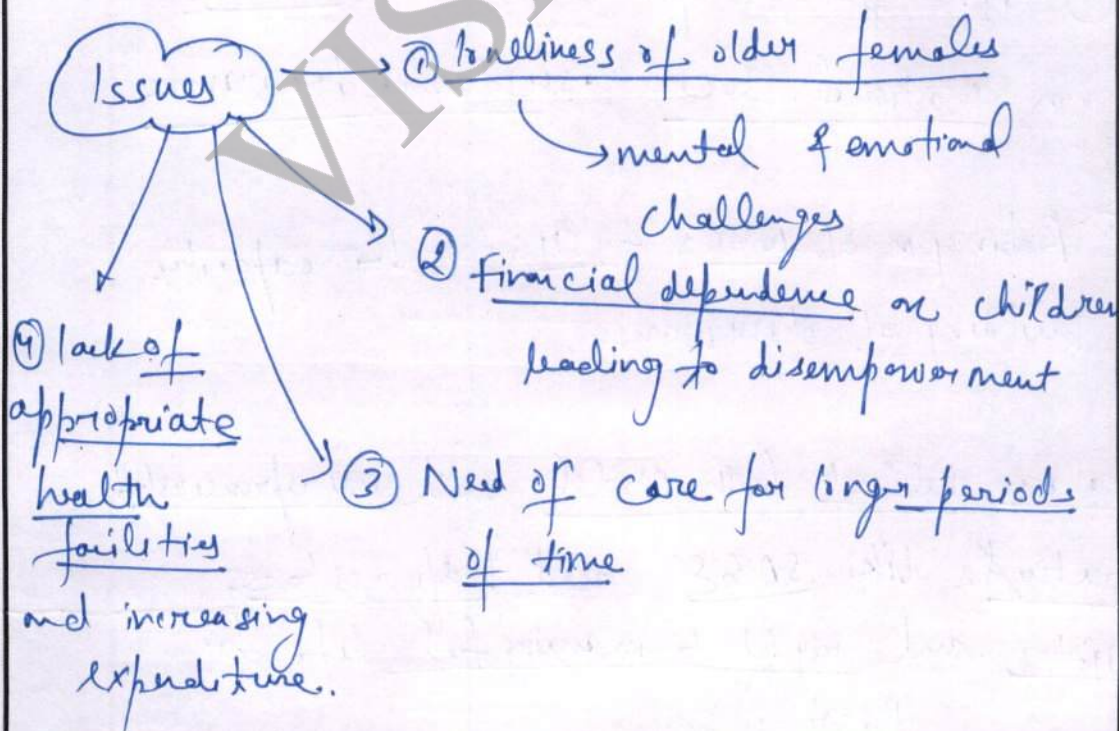 Issues
① loneliness of older females
mental & emotional
challenges
② Financial dependence on children
leading to disempowerment
③ Need of care for longer periods
of time
④ lack of
appropriate
health
facilities
and increasing
expenditure.
VIS